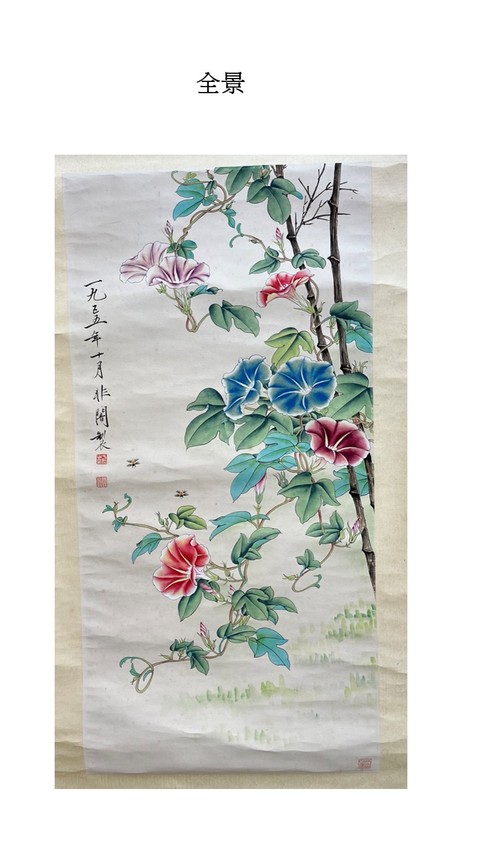 全景
一九五五年十月非闇製